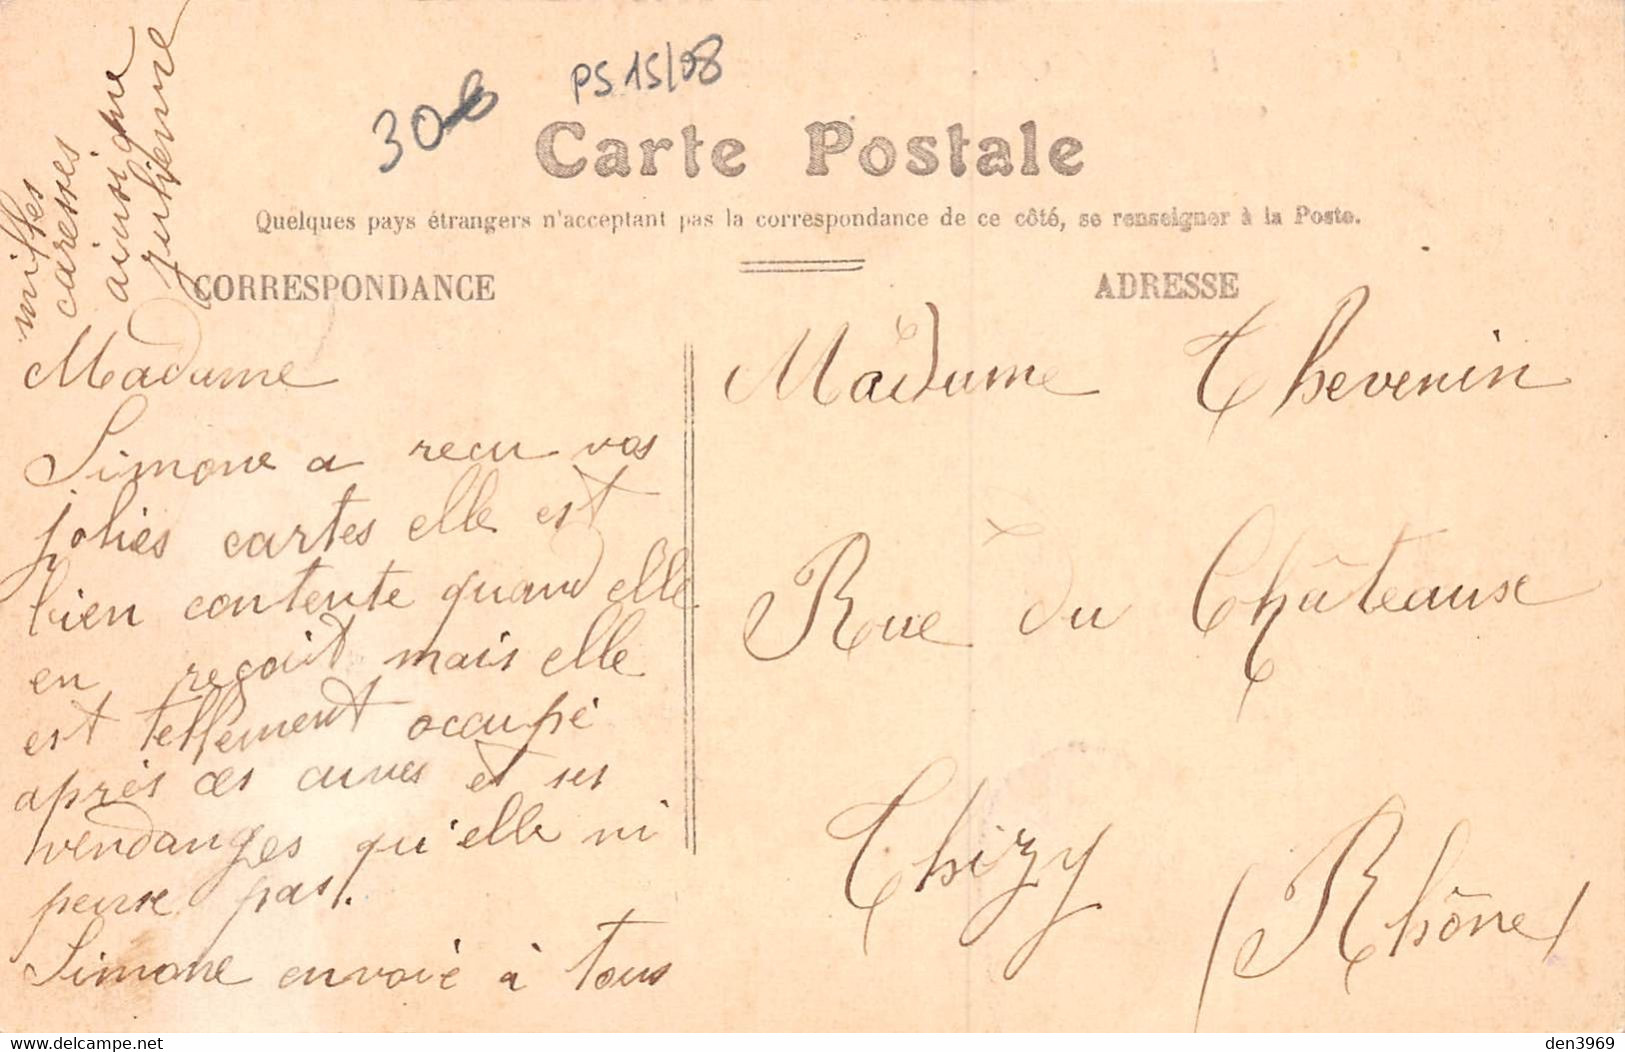 30€
PS 15/08
Carte Postale
Quelques pays étrangers n'acceptant pas la correspondance de ce côté, se renseigner à la Poste.
CORRESPONDANCE
ADRESSE
Madame
Simone a recu vos
jolies cartes elle est
bien contente quand elle
en reçoit mais elle
est tellement occupé
après ces cuves et ses
vendanges qu'elle ni
pense pas.
Simone envoie à tous
milles
caresses
ainsi que
julienne
Madame Thevenin
Rue du Châteaux
Thizy
(Rhône)
delcampe.net
den3969